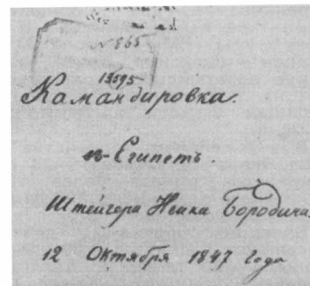 № 865
13595
Командировка.
въ Египетъ.
Штейгера Ивана Бородина.
12 Октября 1847 года